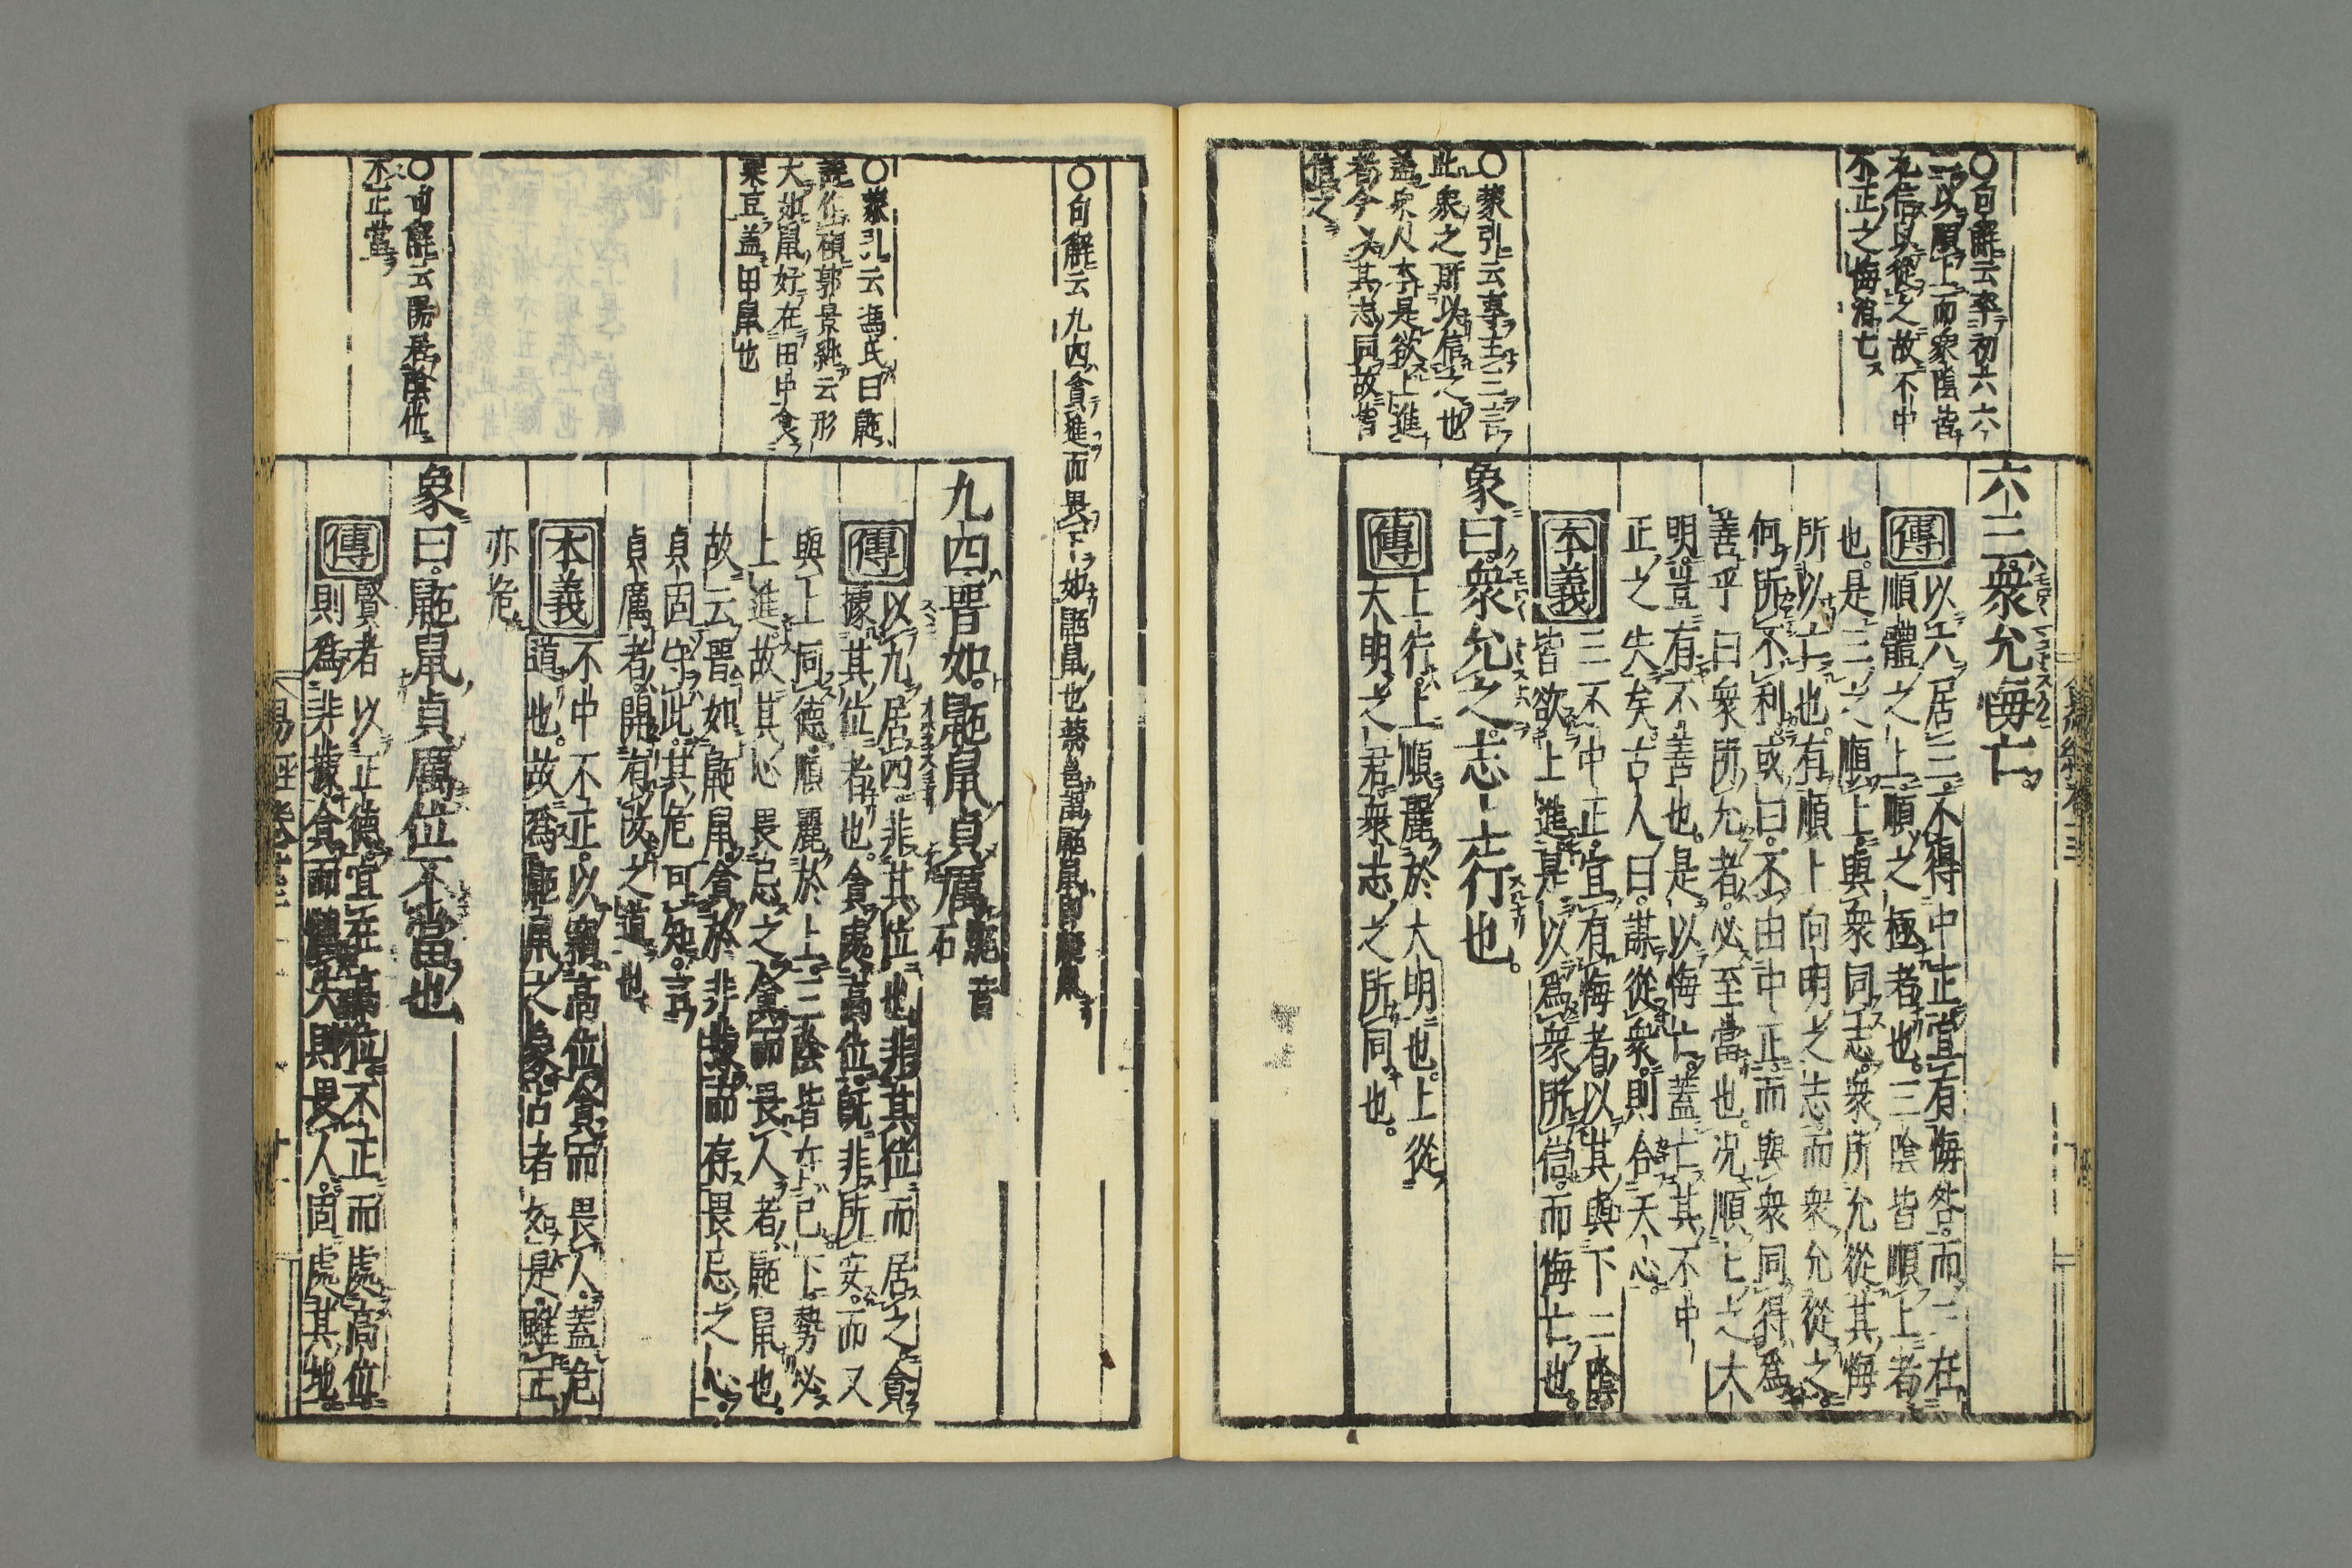 六三。衆允悔亡。
傳
以六居三。不得中正宜有悔咎。而三在
順體之上順之極者也。三陰皆順上者
也。是三之順上與衆同志。衆所允從其悔
所以亡也。有順上向明之志而衆允從之。
何所不利或曰。不由中正而與衆同得爲
善乎曰衆所允者。必至當也。况順上之大
明。豈有不善也。是以悔亡。蓋亡其不中
正之失矣古人曰。謀從衆。則合天心。
本義
三不中正。宜有悔者。以其與下二陰
皆欲上進是以爲衆所信。而悔亡也。
象曰。衆允之。志上行也。
傳
上行。上順麗於大明也。上從
大明之君衆志之所同也。
○句解云率初六六
二以順上而衆陰皆
允信以從之故不中
不正之悔消亡
○蒙引云專主三言
此衆之所以信之也
蓋衆人本是欲上進
者今以其志同故皆
信之
○句解云九四貪進而畏下如鼫鼠也蔡邕謂鼫鼠
九四晋如。鼫鼠貞厲 鼫音石
傳
以九居四非其位也非其位而居之貪
據其位者也。貪處高位。既非所安。而又
與上同德。順麗於上。三陰皆在己下。勢必
上進。故其心畏忌之貪而畏人者。鼫鼠也。
故云晋如鼫鼠。貪於非據而存畏忌之心。
貞固守此。其危可知。言
貞厲者。開有改之道也
本義
不中不正。以竊高位貪而畏人。蓋危
道也。故爲鼫鼠之象占者如是。雖正
亦危
象曰。鼫鼠貞厲位不當也
傳
賢者以正德宜在高位。不正而處高位。
則爲非據貪而懼失則畏人。固處其地。
○蒙引云馮氏曰鼫
說作碩郭景純云形
大如鼠好在田中食
粟豆蓋田鼠也
○句解云陽居陰位
不正當
易經卷十二